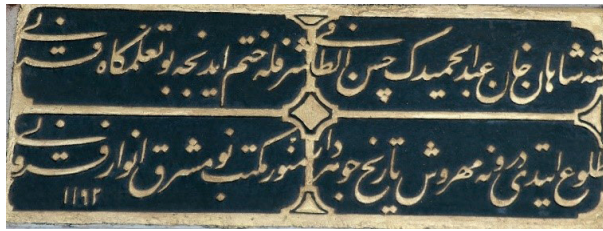 شه شاهان خان عبدالحمیدک حسن الطافی شرفله ختم ایدنجه بو تعلمگاه قرآنی
طلوع ایتدی درونه مهروش تاریخ جوهردار منور مکتب نو مشرق انوار فرقانی
١١٩٢